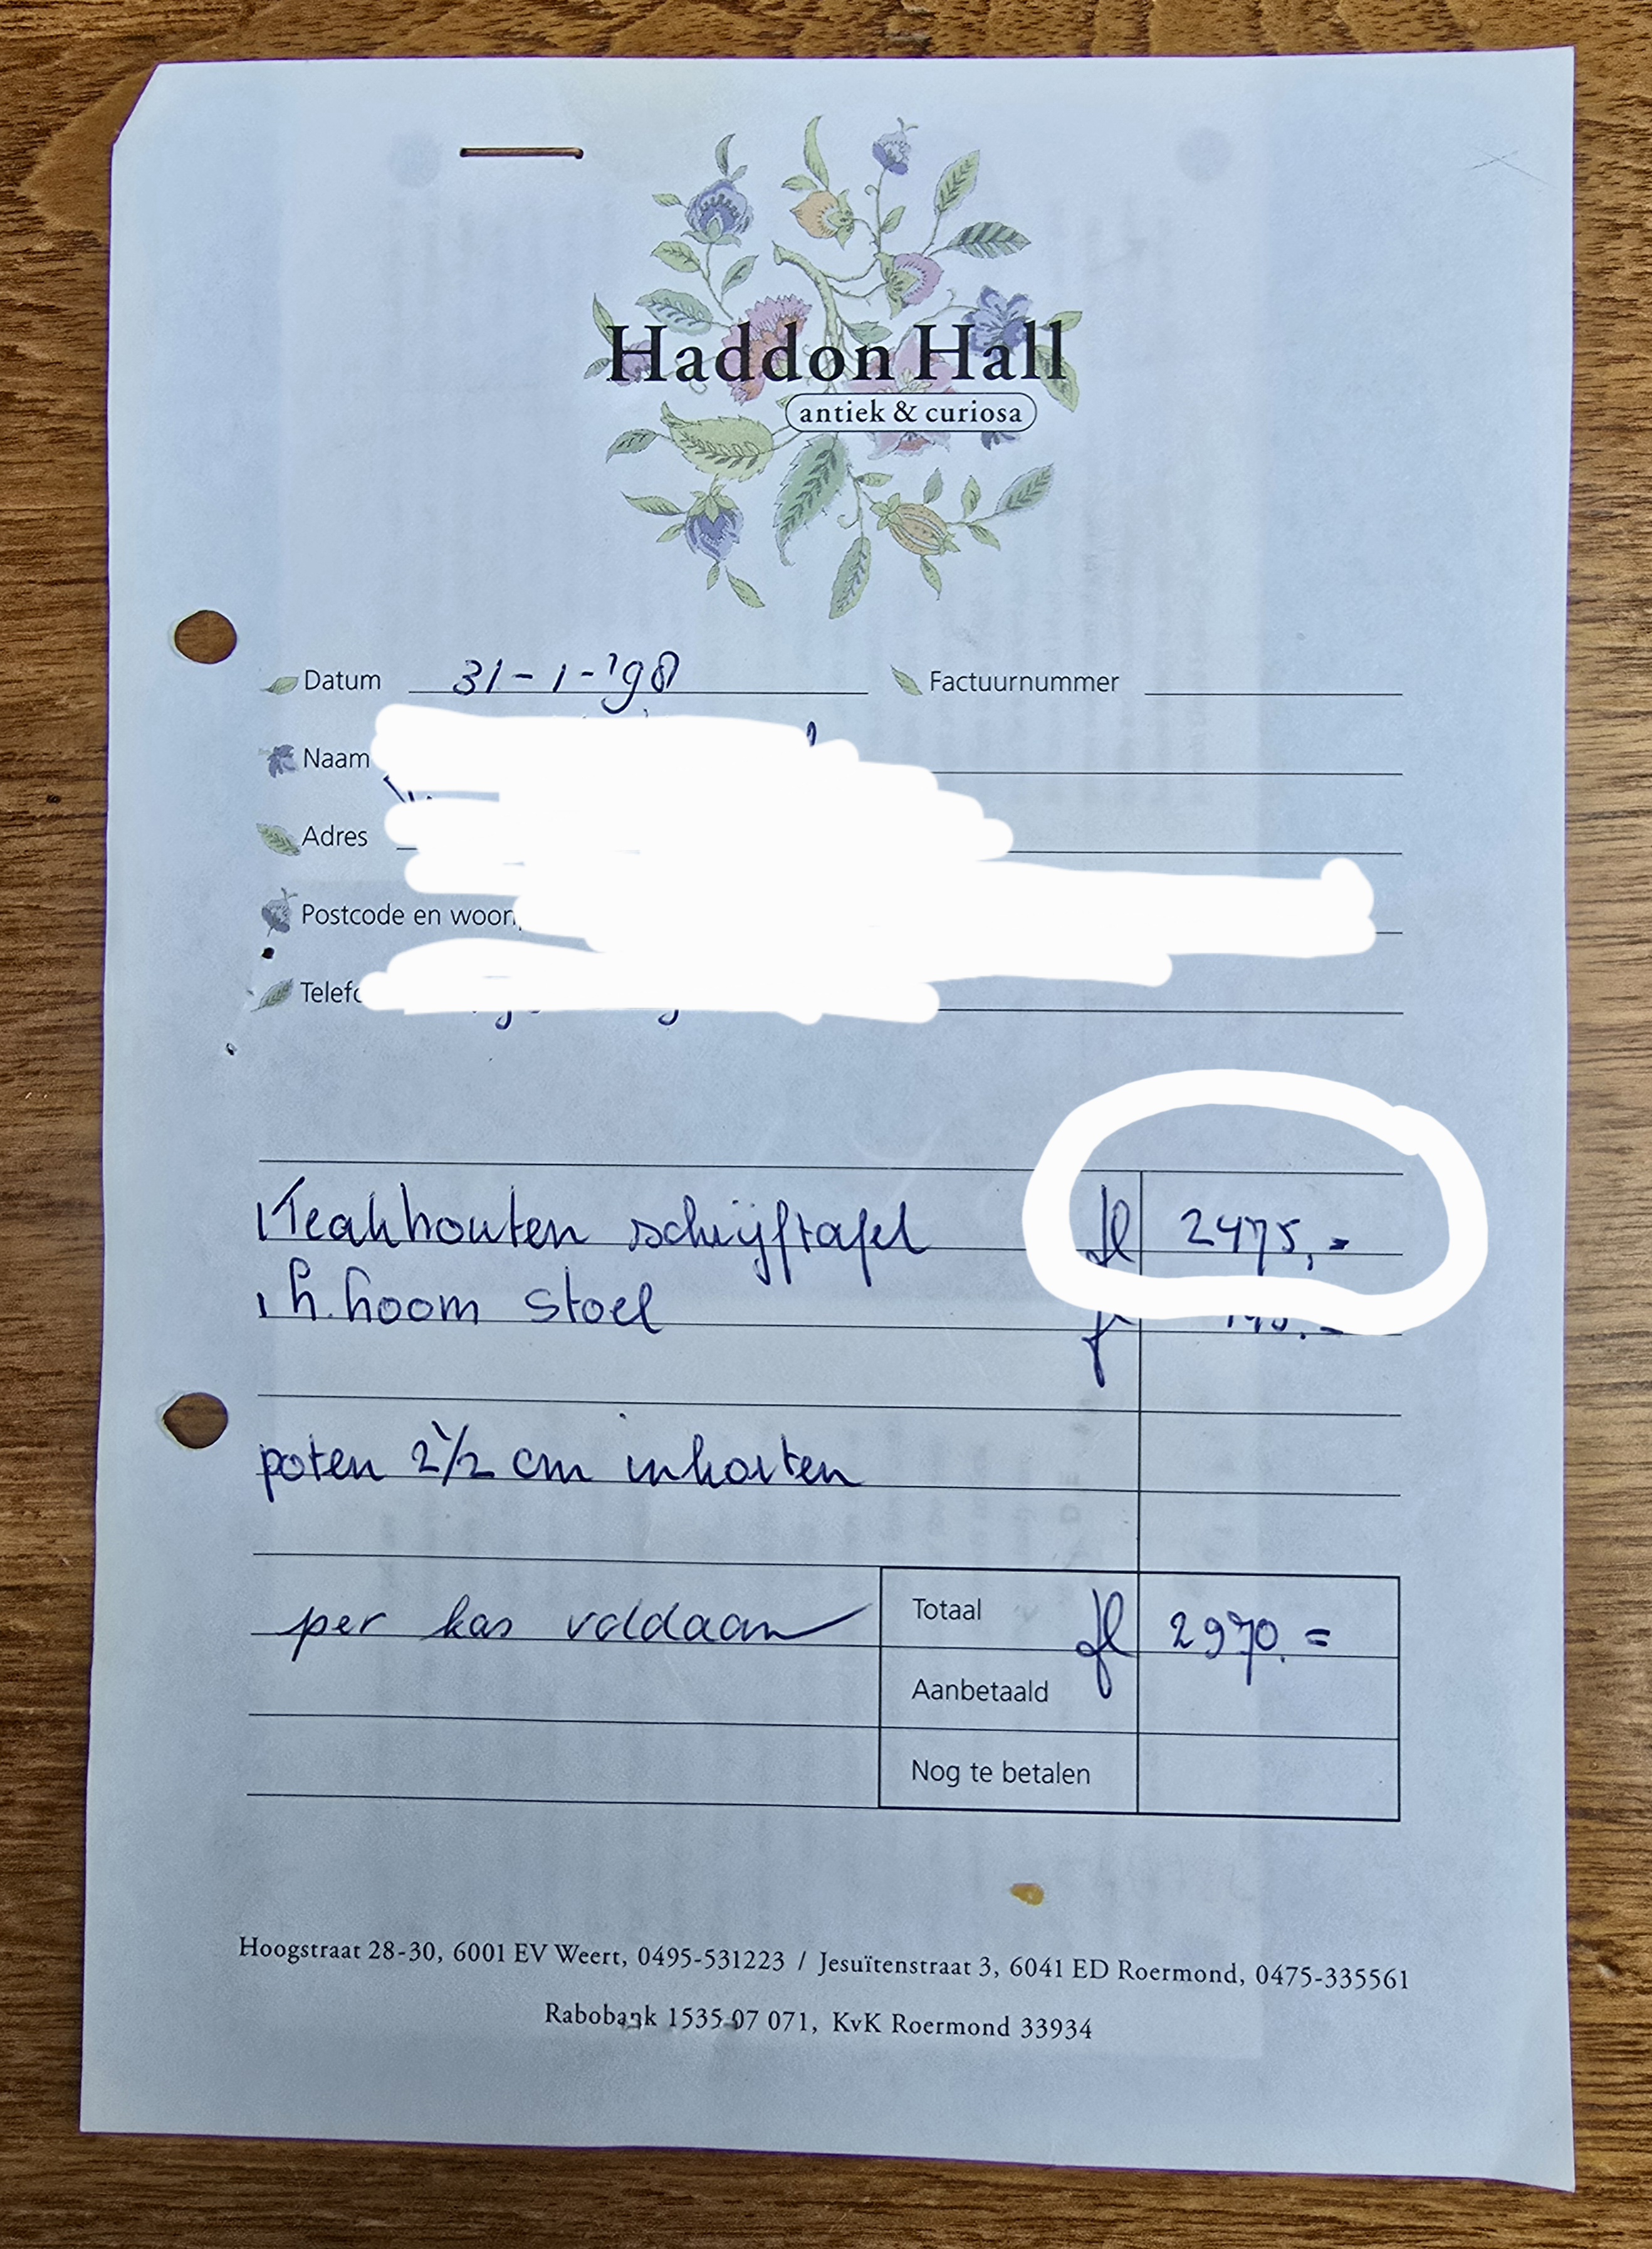 Haddon Hall
antiek & curiosa
Datum 31-1-'98 Factuurnummer
Naam
Adres
Postcode en woon
Telefo
1 Teakhouten schrijftafel fl 2475,=
1 h. hoorn stoel fl
poten 2 1/2 cm inkorten
per kas voldaan Totaal fl 2970.=
Aanbetaald
Nog te betalen
Hoogstraat 28-30, 6001 EV Weert, 0495-531223 / Jesuïtenstraat 3, 6041 ED Roermond, 0475-335561
Rabobank 1535 07 071, KvK Roermond 33934